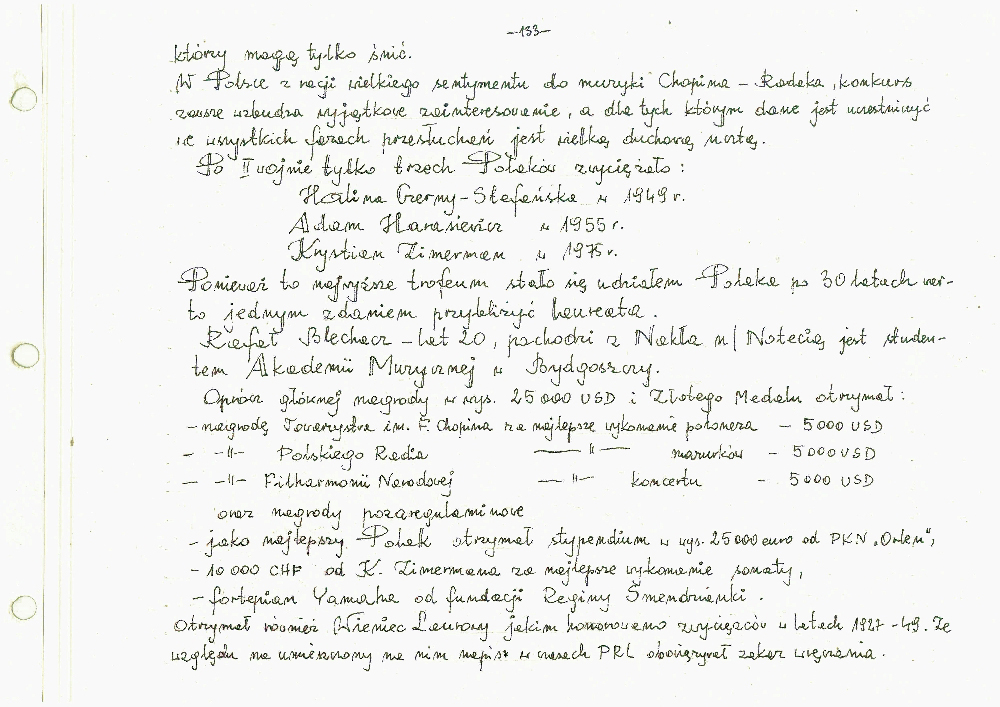 –133–
którzy mogą tylko śnić.
W Polsce z racji wielkiego sentymentu do muzyki Chopina – Rodaka, konkurs
zawsze wzbudza wyjątkowe zainteresowanie, a dla tych którym dane jest uczestniczyć
we wszystkich fazach przesłuchań jest wielką duchową ucztą.
Po II wojnie tylko trzech Polaków zwyciężało :
Halina Czerny-Stefańska w 1949 r.
Adam Harasiewicz w 1955 r.
Krystian Zimerman w 1975 r.
Ponieważ to najwyższe trofeum stało się udziałem Polaka po 30 latach war-
to jednym zdaniem przybliżyć laureata.
Rafał Blechacz – lat 20, pochodzi z Nakła n/Notecią jest studen-
tem Akademii Muzycznej w Bydgoszczy.
Oprócz głównej nagrody w wys. 25 000 USD i Złotego Medalu otrzymał :
– nagrodę Towarzystwa im. F. Chopina za najlepsze wykonanie poloneza – 5 000 USD
– –"– Polskiego Radia –– " –– mazurków – 5 000 USD
– –"– Filharmonii Narodowej –– " –– koncertu – 5 000 USD
oraz nagrody pozaregulaminowe
– jako najlepszy Polak otrzymał stypendium w wys. 25 000 euro od PKN „Orlen",
– 10 000 CHF od K. Zimermana za najlepsze wykonanie sonaty,
– fortepian Yamaha od fundacji Reginy Smendzianki.
Otrzymał również Wieniec Laurowy jakim honorowano zwycięzców w latach 1927 – 49. Ze
względu na umieszczony na nim napis w czasach PRL obowiązywał zakaz wręczania.